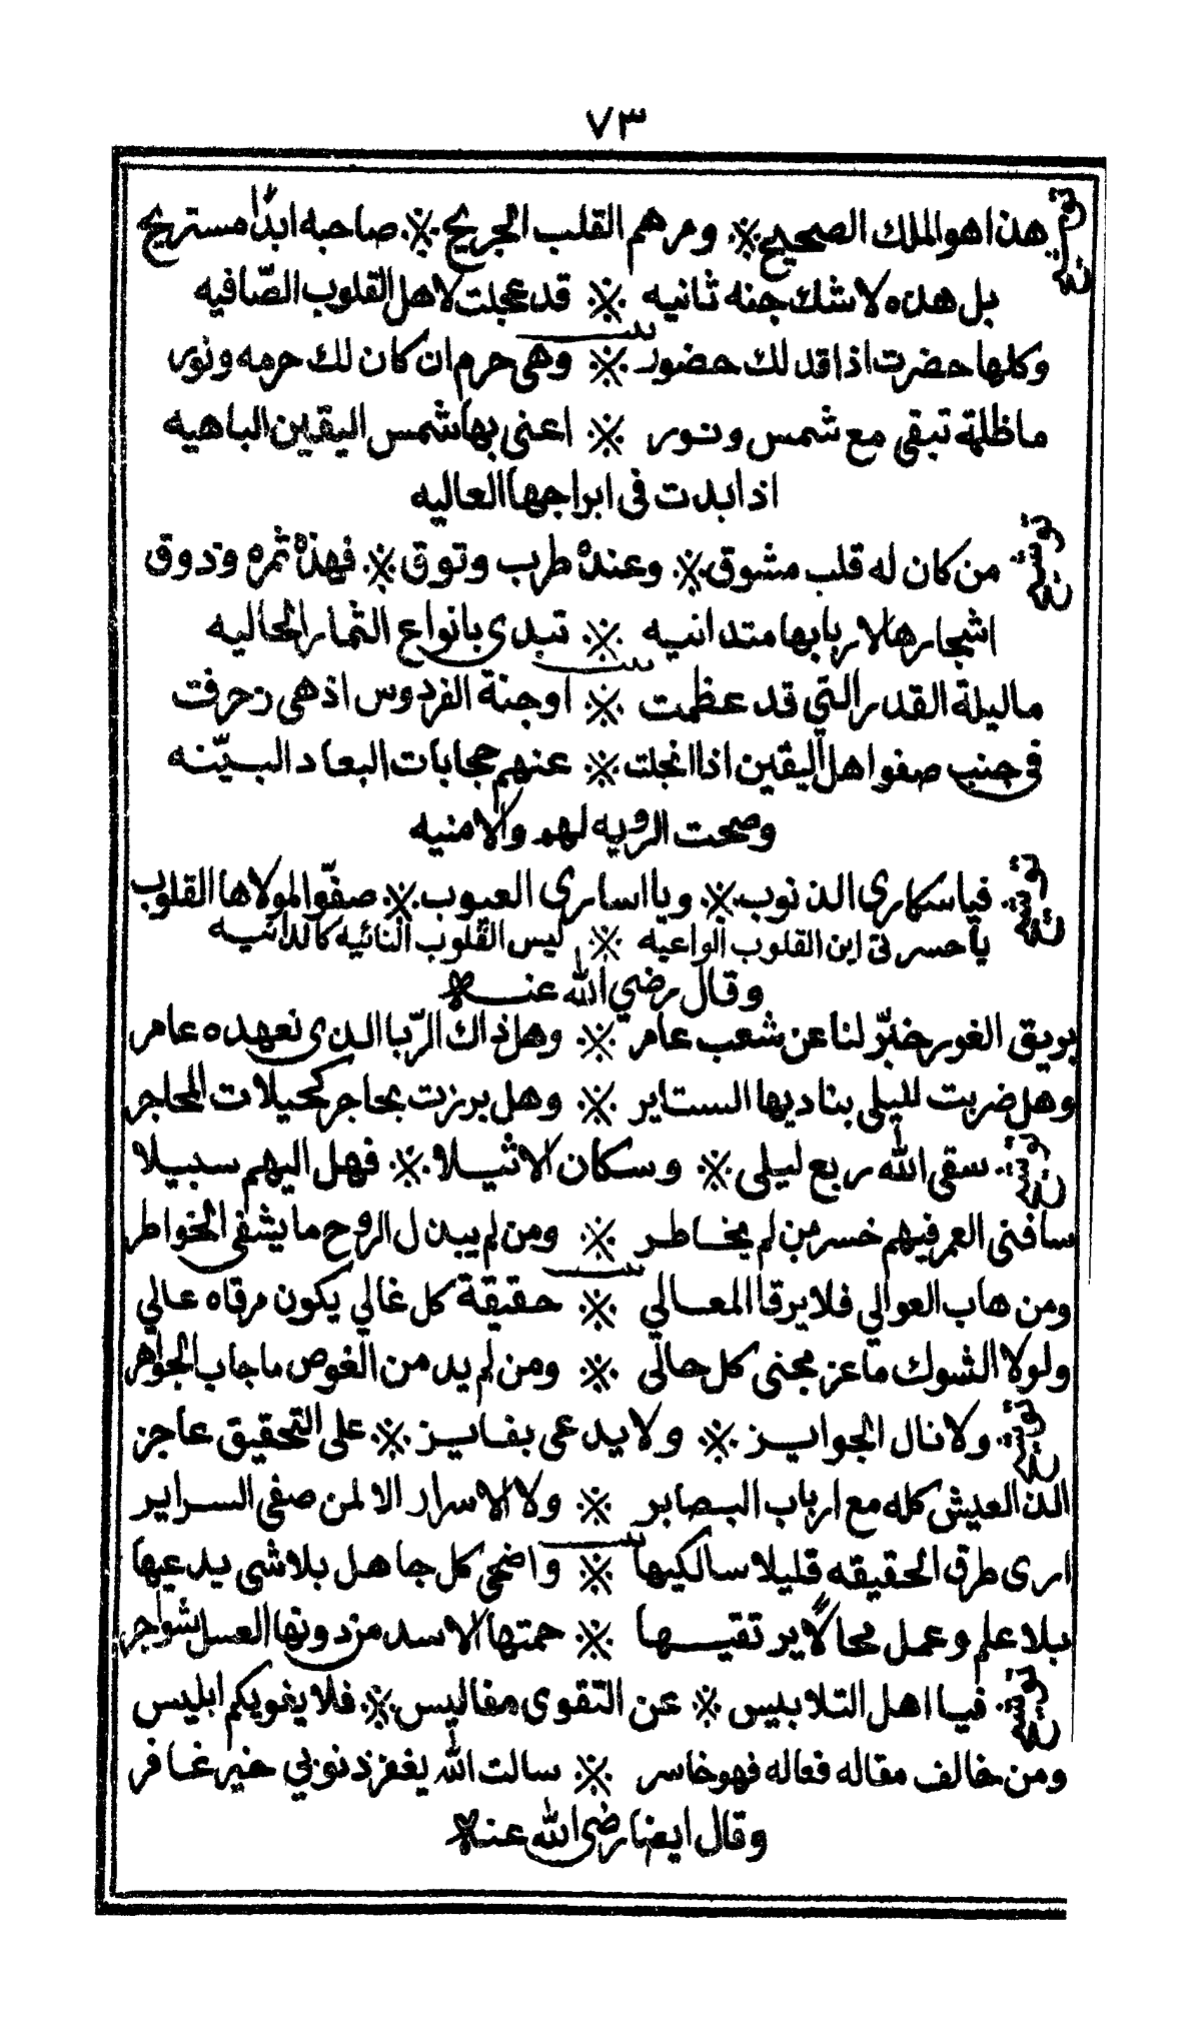 ٧٣
توشيح هذا هو الملك الصحيح ※ ومرهم القلب الجريح ※ صاحبه ابدًا مستريح
بل هذه لا شك جنه ثانيه ※ قد عجلت لاهل القلوب الصّافيه
بيت
وكلها حضرت اذا قد لك حضور ※ وهى حرم ان كان لك حرمه ونور
ما ظلمة تبقى مع شمس ونور ※ اعنى بها شمس اليقين الباهيه
اذا بدت فى ابراجها العاليه
توشيح من كان له قلب مشوق ※ وعنده طرب وتوق ※ فهذه ثمره وذوق
اشجارها لاربابها متدانيه ※ تبدى بانواع الثمار الحاليه
بيت
ما ليلة القدر التي قد عظمت ※ او جنة الفردوس اذ هى زخرفت
فى جنب صفو اهل اليقين اذا انجلت ※ عنهم حجابات البعاد البيّنه
وصحت الرويه لهم والامنيه
توشيح فيا سكارى الذنوب ※ ويا اسارى العيوب ※ صفّوا لمولاها القلوب
يا حسرتى اين القلوب الواعيه ※ ليس القلوب النائيه كالدانيه
وقال رضي الله عنه
بريق الغور خبّر لنا عن شعب عامر ※ وهل ذاك الرّبا الذى نعهده عامر
وهل ضربت لليلى بناديها الستاير ※ وهل برزت بحاجر كحيلات المحاجر
توشيح سقى الله ربع ليلى ※ وسكان الاثيلا ※ فهل اليهم سبيلا
سافنى العمر فيهم خسر من لم يخاطر ※ ومن لم يبذل الروح ما يشفى الخواطر
بيت
ومن هاب العوالي فلا يرقا المعالي ※ حقيقة كل غالي يكون مرقاه عالي
ولولا الشوك ما عز مجنى كل حالى ※ ومن لم يدمن الغوص ما جاب الجواهر
توشيح ولا نال الجوايز ※ ولا يدعى بفايز ※ على التحقيق عاجز
الذ العيش كله مع ارباب البصاير ※ ولا الاسرار الا لمن صفى السراير
بيت
ارى طرق الحقيقه قليلا سالكيها ※ واضحى كل جاهل بلا شى يدعيها
بلا علم وعمل محالًا يرتقيها ※ حمتها الاسد من دونها العسل شواجر
توشيح فيا اهل التلابيس ※ عن التقوى مفاليس ※ فلا يغويكم ابليس
ومن خالف مقاله فعاله فهو خاسر ※ سالت الله يغفر ذنوبي خير غافر
وقال ايضا رضى الله عنه